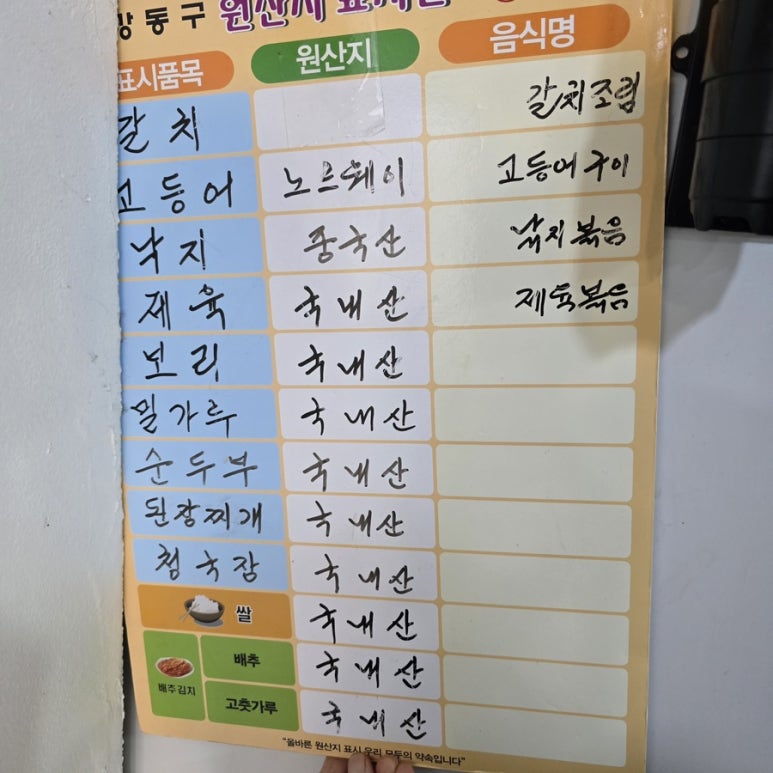 강동구 원산지 표시판
표시품목 원산지 음식명
갈치 갈치조림
고등어 노르웨이 고등어구이
낙지 중국산 낚지볶음
제육 국내산 제육볶음
보리 국내산
밀가루 국내산
순두부 국내산
된장찌개 국내산
청국장 국내산
쌀 국내산
배추김치 배추 국내산
고춧가루 국내산
"올바른 원산지 표시 우리 모두의 약속입니다"